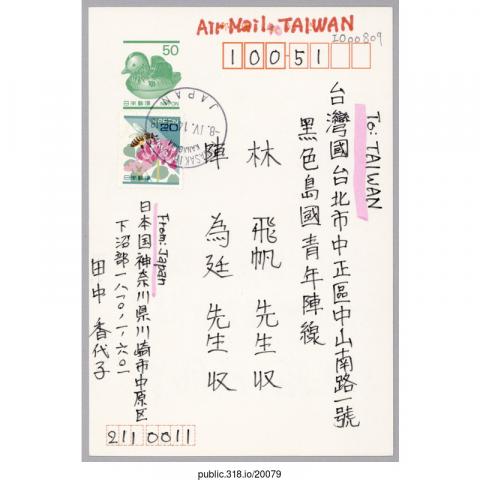 Air Mail TAIWAN
I000809
100-51
50
日本郵便 NIPPON
NIPPON
20
日本郵便
JAPAN
-8.IV.14
To: TAIWAN
台灣國台北市中正區中山南路一號
黑色島國青年陣線
林 飛帆 先生収
陣 為廷 先生収
From: Japan
日本国神奈川県川崎市中原区
下沼部一八一〇ノ一ノ六〇一
田中 香代子
2110011
public.318.io/20079